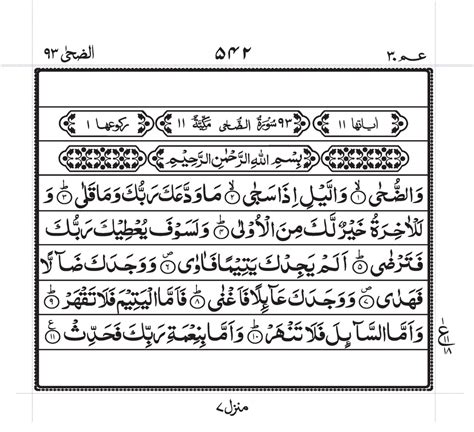 عـم ٣٠ ۵۴۲ الضحى ٩٣
اٰیاتها ١١ ٩٣ سُوْرَةُ الضُّحٰى مَكِّيَّةٌ ١١ رکوعها ١
بِسْمِ اللّٰهِ الرَّحْمٰنِ الرَّحِيْمِ
وَالضُّحٰىۙ ﴿١﴾ وَالَّيْلِ اِذَا سَجٰىۙ ﴿٢﴾ مَا وَدَّعَكَ رَبُّكَ وَمَا قَلٰىؕ ﴿٣﴾ وَ
لَلْاٰخِرَةُ خَيْرٌ لَّكَ مِنَ الْاُوْلٰىؕ ﴿۴﴾ وَلَسَوْفَ يُعْطِيْكَ رَبُّكَ
فَتَرْضٰىؕ ﴿۵﴾ اَلَمْ يَجِدْكَ يَتِيْمًا فَاٰوٰى۪ ﴿۶﴾ وَوَجَدَكَ ضَآلًّا
فَهَدٰى۪ ﴿٧﴾ وَوَجَدَكَ عَآئِلًا فَاَغْنٰىؕ ﴿٨﴾ فَاَمَّا الْيَتِيْمَ فَلَا تَقْهَرْؕ ﴿٩﴾
وَاَمَّا السَّآئِلَ فَلَا تَنْهَرْؕ ﴿١٠﴾ وَاَمَّا بِنِعْمَةِ رَبِّكَ فَحَدِّثْ ﴿١١﴾ ع
ع ١١ ١٨
منزل ٧